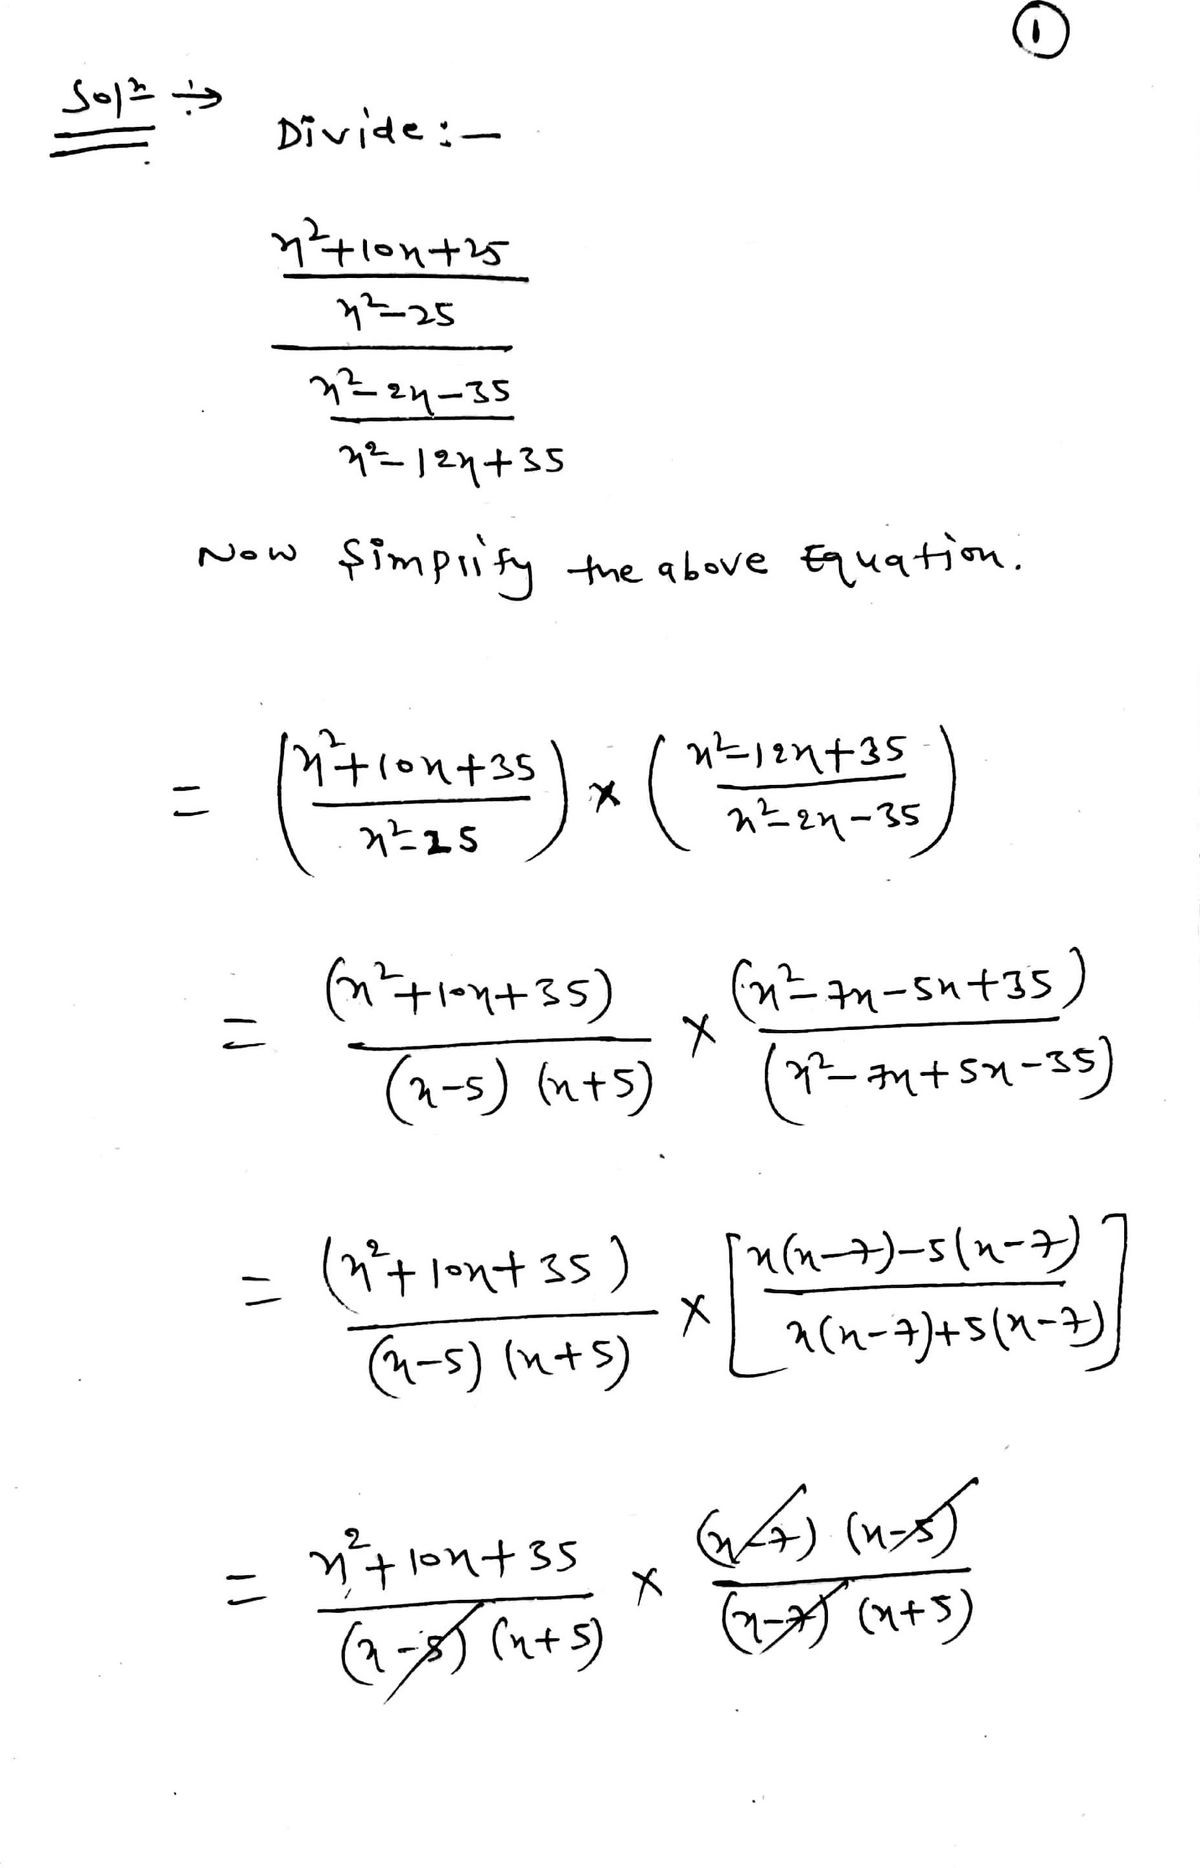 ①
Solⁿ ⇒
Divide :—
x²+10x+25
x²-25
x²-2x-35
x²-12x+35
Now Simplify the above Equation.
= (x²+10x+35 / x²-25) × (x²-12x+35 / x²-2x-35)
= (x²+10x+35) / (x-5) (x+5) × (x²-7x-5x+35) / (x²-7x+5x-35)
= (x²+10x+35) / (x-5) (x+5) × [x(x-7)-5(x-7) / x(x-7)+5(x-7)]
= x²+10x+35 / (x-5) (x+5) × (x-7) (x-5) / (x-7) (x+5)